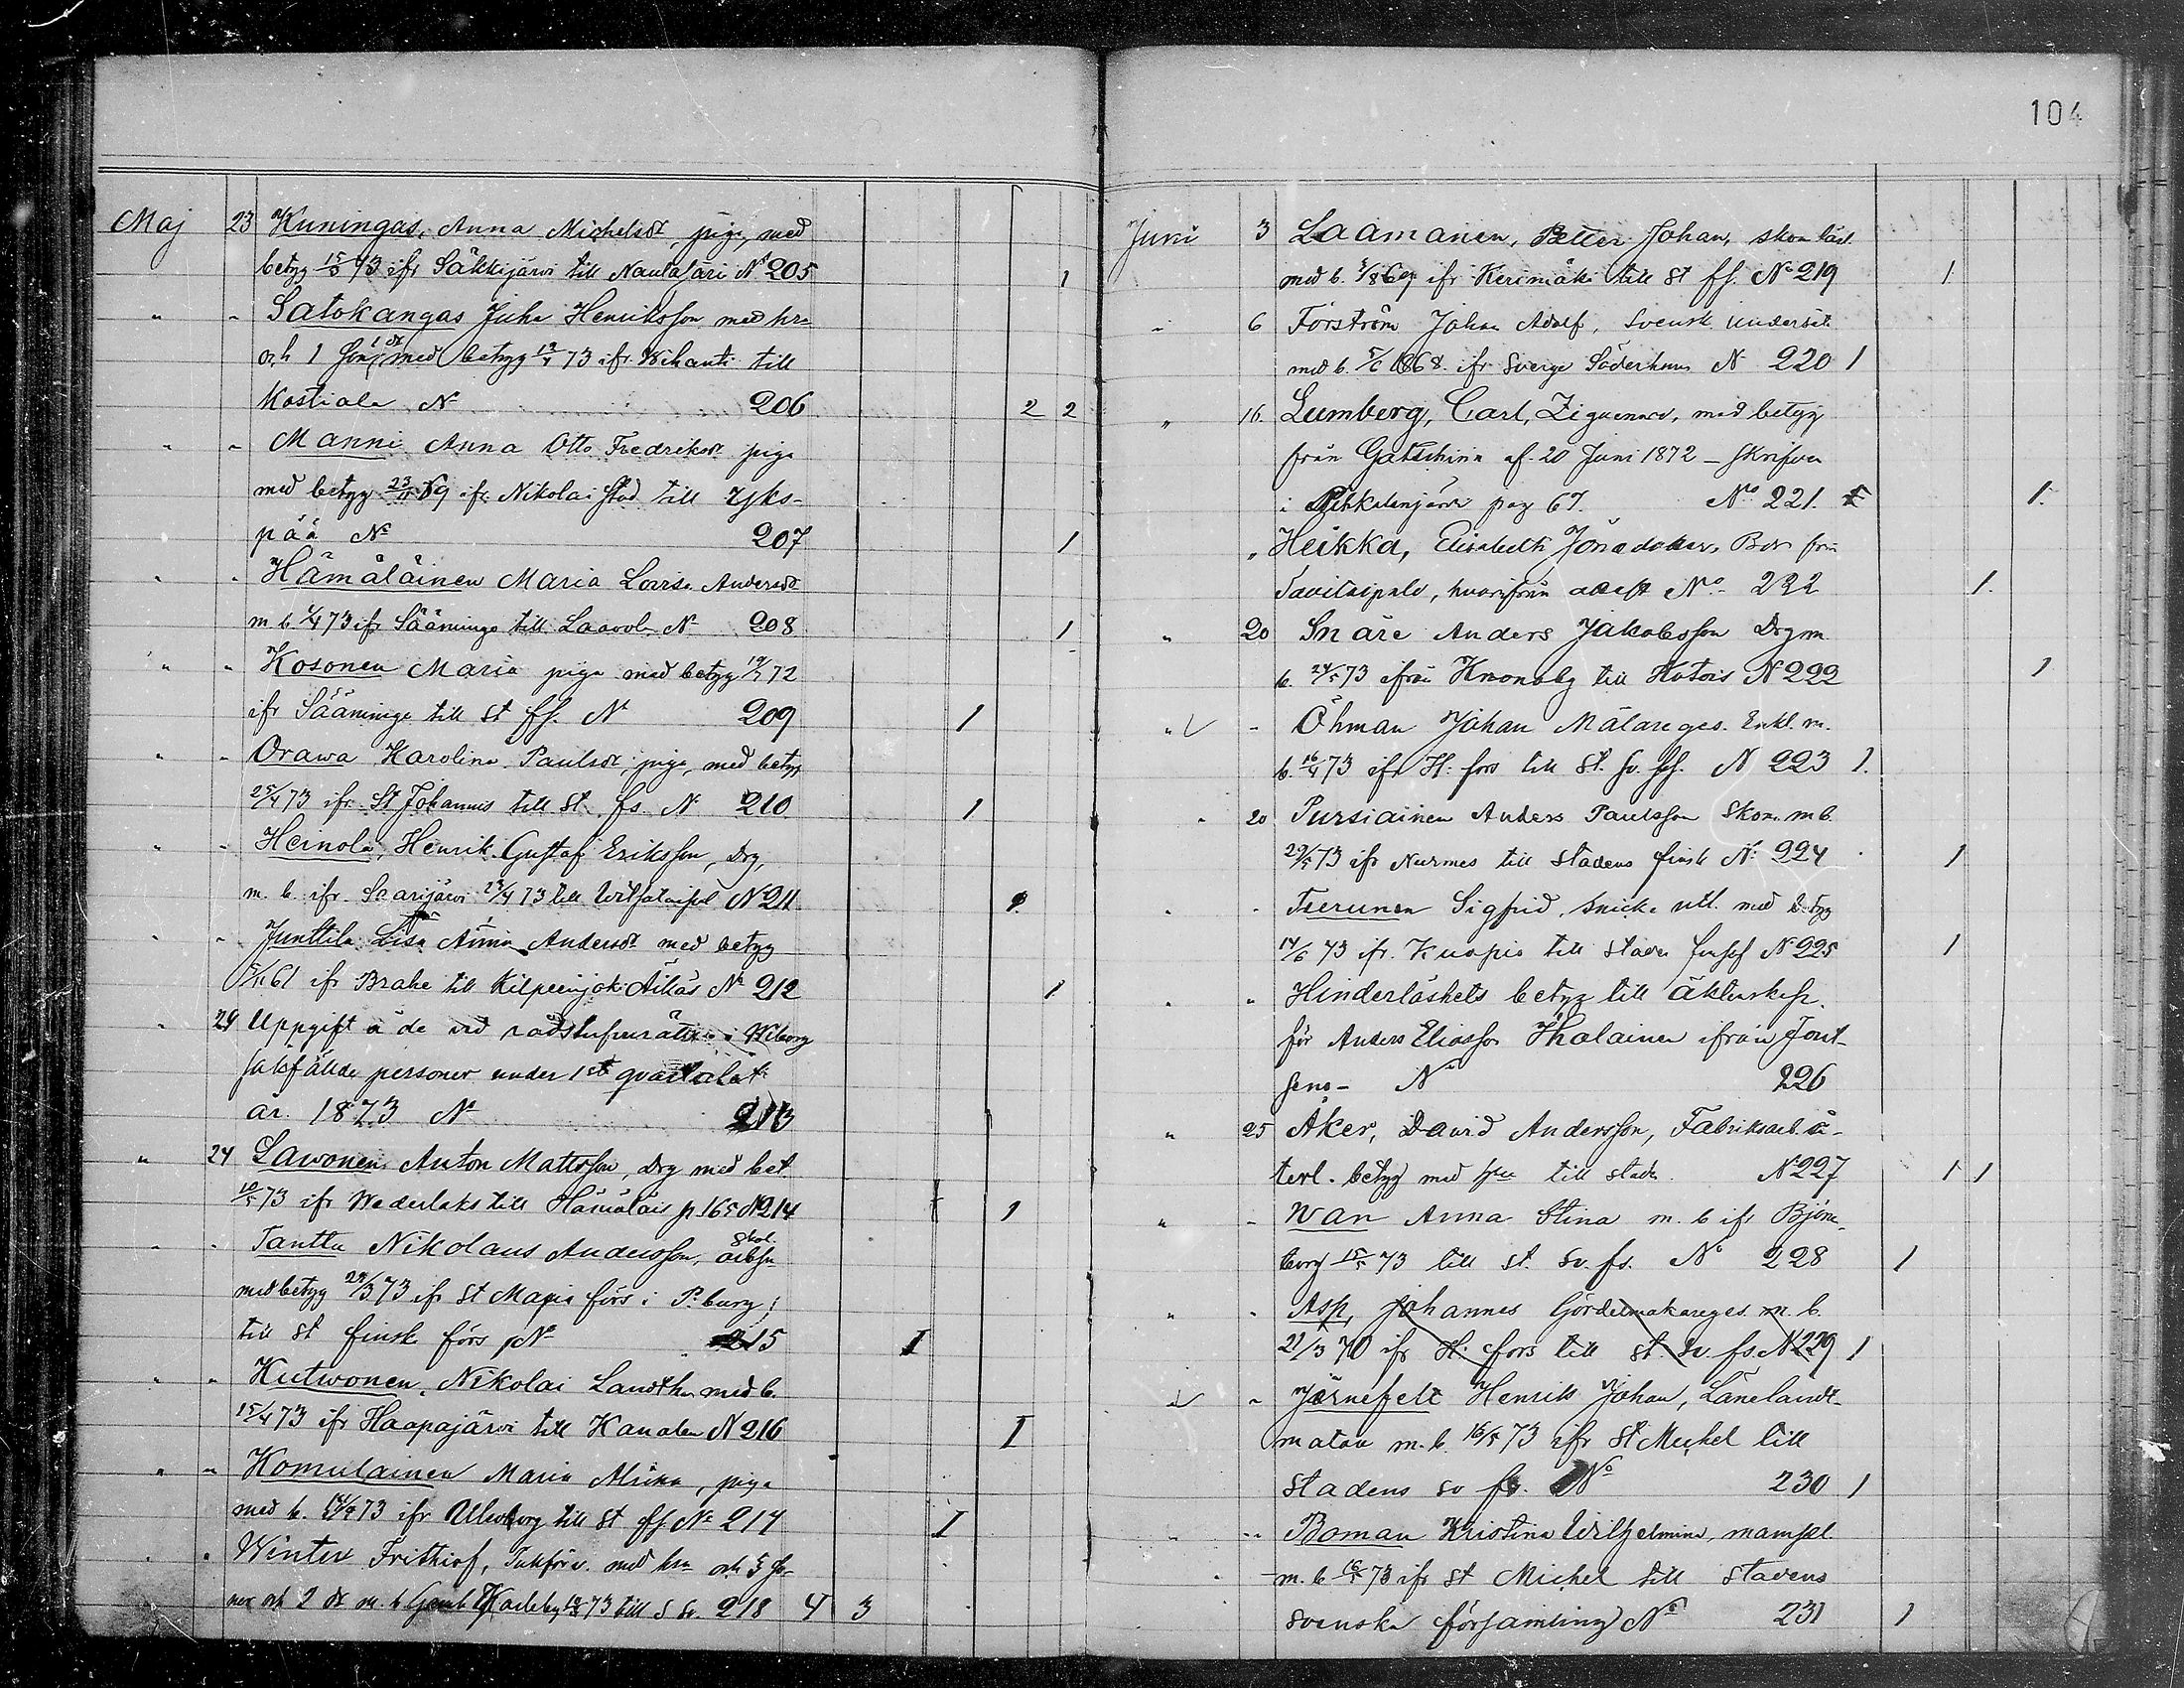 104
Maj 23 Kuningas, Anna Michelsdr, piga, med
betyg 15/5 73 ifr Säkkijärvi till Naulasari No 205 1
" " Satokangas Juha Henriksson med hu
och 1 son 1 dr med betyg 12/4 73 ifr. Wihanti till
Kostiala No 206 2 2
" " Manni Anna Otto Fredriksdr piga
med betyg 23/11 69 ifr Nikolaistad till Yks-
pää No 207 1
" " Hämäläinen Maria Lovisa Andersdr
m b 1/4 73 ifr Sääminge till No 208 1
" " Kosonen Maria piga med betyg 72
ifr Sääminge till St fs. No 209 1
" " Orawa Karolina Paulsdr, piga, med betyg
25/4 73 ifr. St Johannes till St. fs. No 210 1
" " Heinola, Henrik Gustaf Eriksson, Drg,
m. b. ifr. Saarijärvi 23/4 73 till No 211 1
" " Junttila Lisa Anna Andersdr med betyg
61 ifr Brahe till Kilpeenjoki Älläs No 212 1
" 24 Uppgift å de vid rådstufvurätten i Wiborg
sakfällda personer under 1st qvartalet
år. 1873 No 213
" 24 Lavonen Anton Mattsson, Drg med bet.
10/5 73 ifr Wederlaks till Hämäläis p 165 No 214 1
" " Tantta Nikolaus Andersson, Skol.
med betyg 29/3 73 ifr St Maria förs i P.burg,
till St finsk förs No 215 1
" " Kutwonen, Nikolai Landth. med b.
15/4 73 ifr Haapajärvi till Kanalen No 216 1
" " Komulainen Maria Miina, piga
med b. 73 ifr Uleåborg till St fs. No 217 1
" " Winter Frithiof, med hu och 3 sö-
ner och 2 dr m. b Gamla Karleby 73 till S Sv. 218 4 3
Juni 3 Laamanen, Petter Johan, skom lärl.
med b. 69 ifr Kerimäki till St fs. No 219 1
" 6 Forström Johan Adolf, Svensk undersåte
med b. 5/6 1868. ifr Sverge Söderhamn No 220 1
" 16. Lumberg, Carl, Ziguenare, med betyg
från Gatschina af 20 Juni 1872 – skrifven
i Pihkalanjärvi pag 67. No 221. 1
" Heikka, Elisabeth Jonædotter, Bdr från
Savitaipale, hvarifrån attest No 222 1
" 20 Snåre Anders Jakobsson Drg m
b. 24/5 73 ifrån Kronoby till No 222 1
" " Öhman Johan Målareges. Enkl. m.
b. 16/4 73 ifr H:fors till St. sv. fs. No 223 1.
" 20 Pursiainen Anders Paulsson Skom. m b.
29/5 73 ifr Nurmes till Stadens finsk No 224 1
" " Tserunen Sigfrid, snick. utl. med betyg
14/6 73 ifr. Kuopio till Stads No 225 1
" " Hinderlöshets betyg till äktenskap.
för Anders Eliasson Ihalainen ifrån Jout-
seno – No 226
" 25 Åker, David Andersson, Fabriksarb. å-
terl. betyg med hu till stads No 227 1 1
" " Wan Anna Stina m. b ifr Björne-
borg 15/5 73 till St. Sv. fs. No 228 1
" " Asp, Johannes Gördelmakareges. m. b.
21/3 70 ifr H:fors till St. Sv. fs. No 229 1
" " Järnefelt Henrik Johan, Länelandt-
matare m. b. 16/5 73 ifr St Michel till
Stadens sv fs. No 230 1
" " Boman Kristina Wilhelmina, mamsel
m. b 73 ifr St Michel till Stadens
svenska församling No 231 1